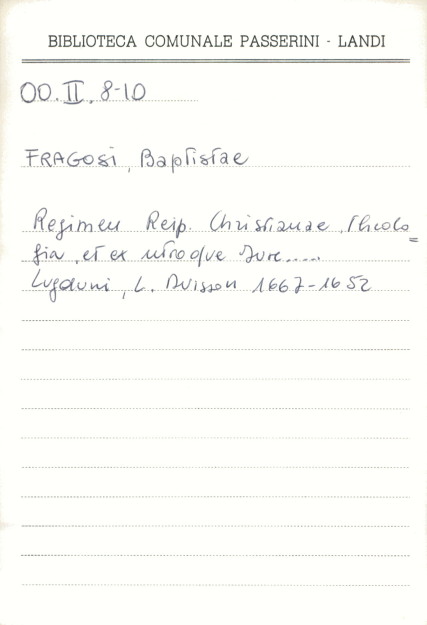 BIBLIOTECA COMUNALE PASSERINI - LANDI
OO.II, 8-10
FRAGOSI, Baptistae
Regimen Reip. Christianae, Theolo=
gia, et ex utroque Jure.....
Lugduni, L. Avisson 1667-1652